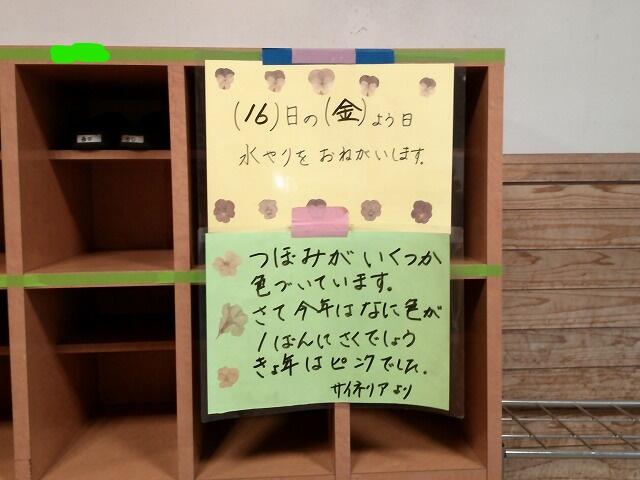 (16)日の(金)よう日
水やりをおねがいします。
つぼみがいくつか
色づいています。
さて今年はなに色が
1ばんにさくでしょう
きょ年はピンクでした。
サイネリアより